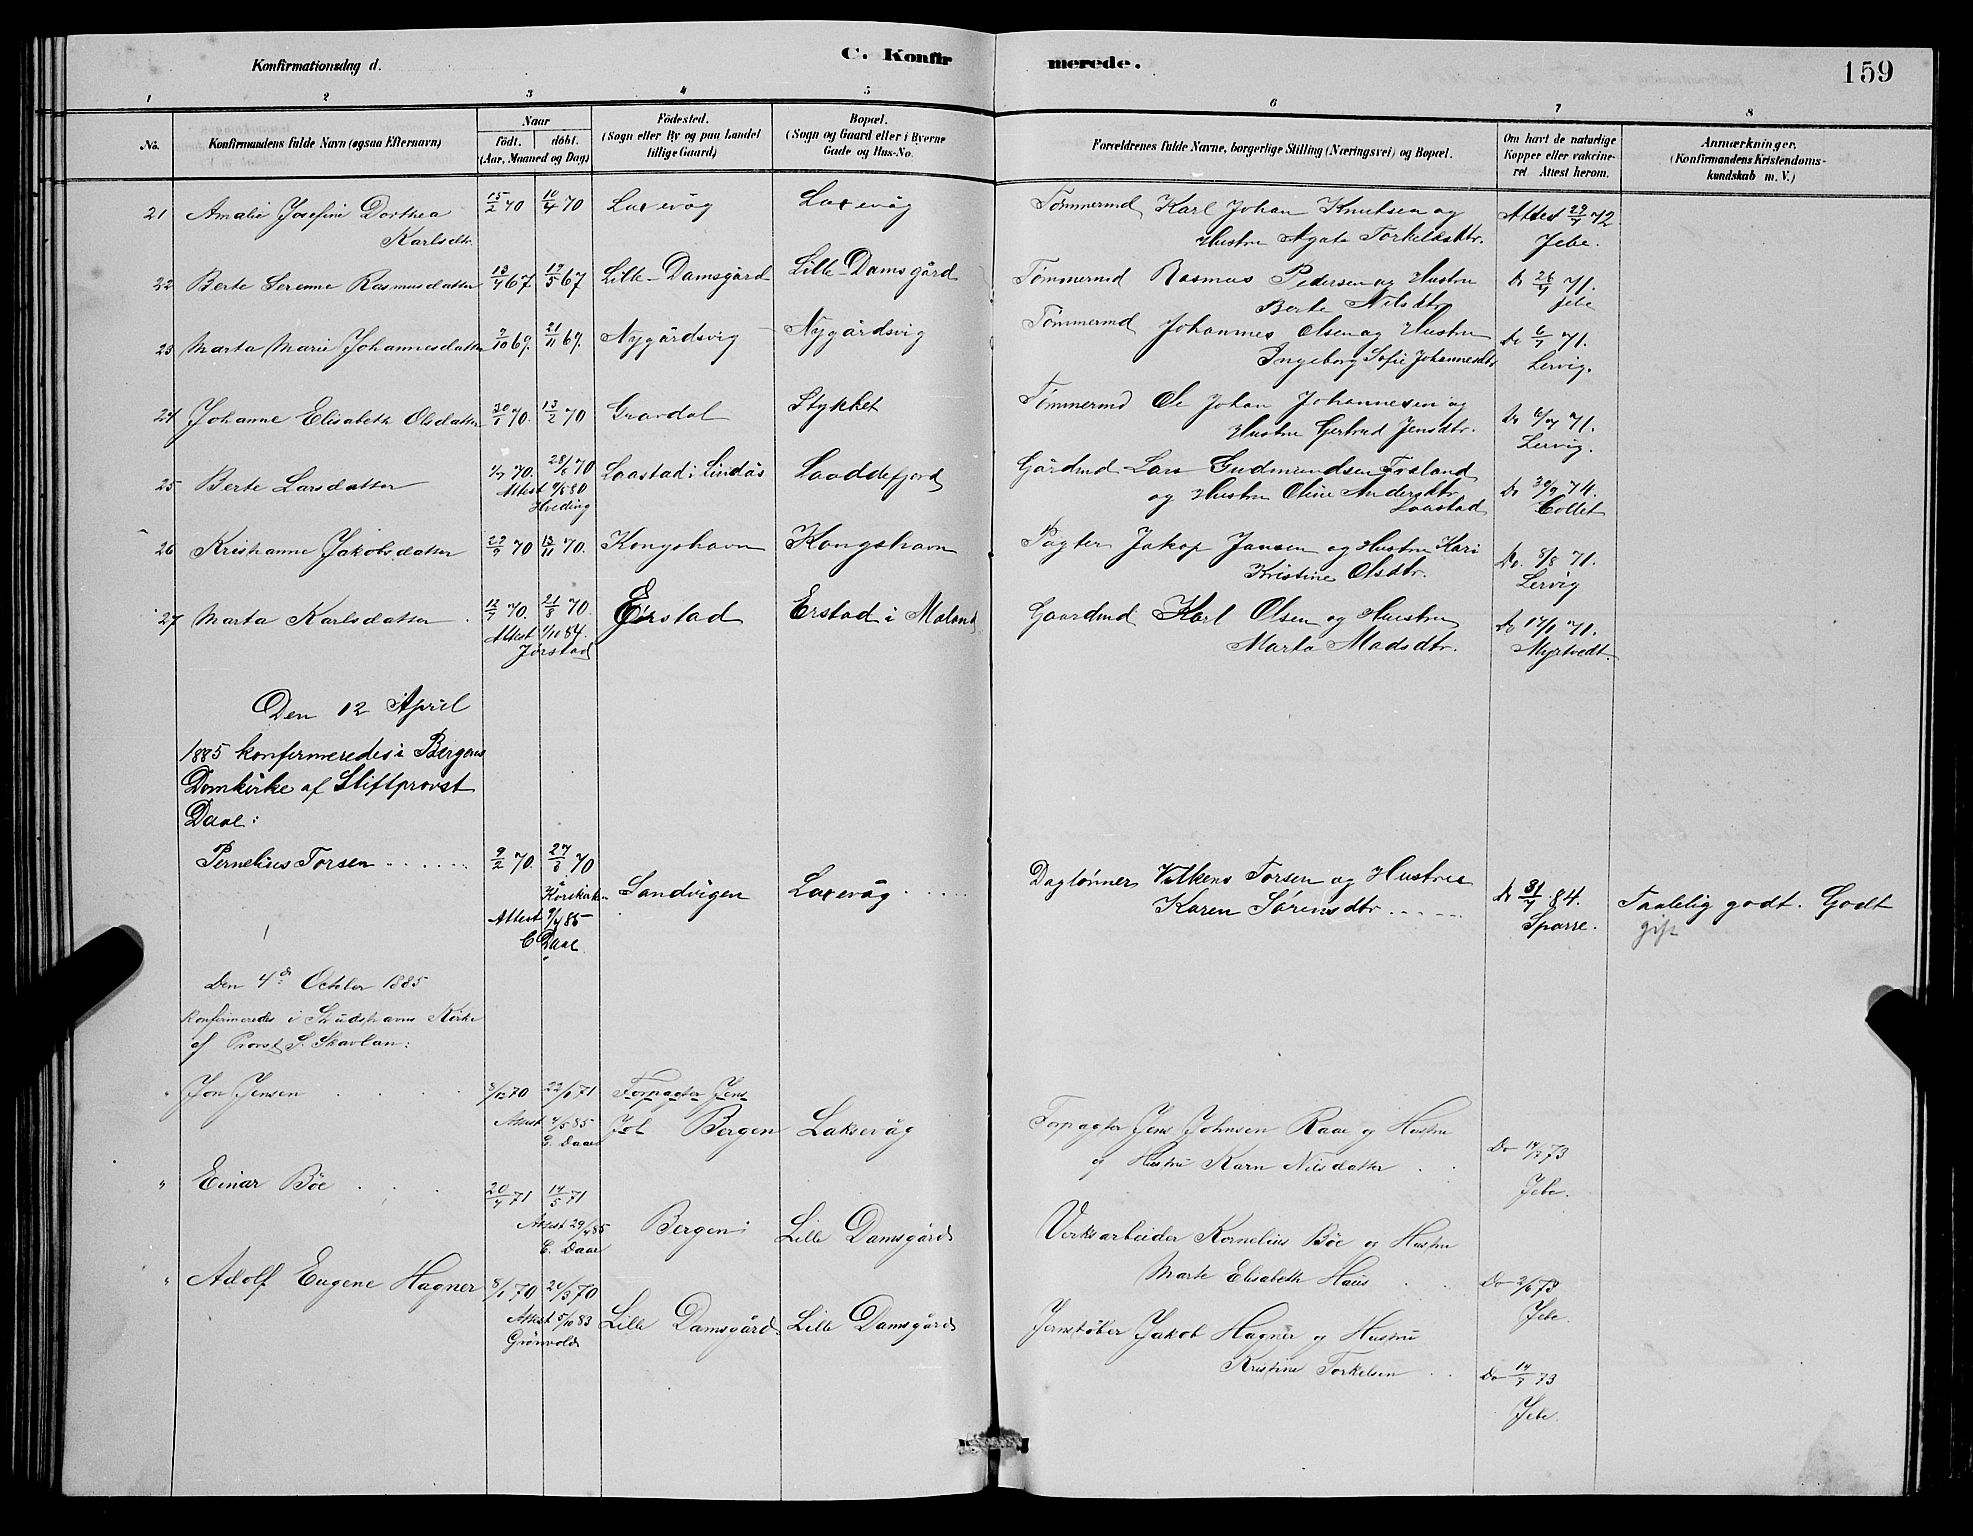 C. Konfirmerede.
159
Konfirmationsdag d.
1 2 3 4 5 6 7 8
No. Konfirmandens fulde Navn (ogsaa Efternavn)
Naar
født. døbt.
(Aar, Maaned og Dag)
Fødested.
(Sogn eller By og paa Landet
tillige Gaard)
Bopæl.
(Sogn og Gaard eller i Byerne
Gade og Hus-No.
Forældrenes fulde Navne, borgerlige Stilling (Næringsvei) og Bopæl.
Om havt de naturlige
Kopper eller vakcine-
ret Attest herom.
Anmærkninger.
(Konfirmandens Kristendoms-
kundskab m. V.)
21 Amalie Josefine Dorthea 15/2 70 10/4 70 Laxevåg Laxevåg Tømmermd Karl Johan Knutsen og Attest 29/7 72
Karlsdtr. Hustru Agate Torkeldsdtr. Jebe.
22 Berte Serenne Rasmusdatter 13/4 67 12/5 67 Lille-Damsgård Lille-Damsgård Tømmermd Rasmus Pedersen og Hustru Do 26/7 71.
Berte Nilsdtr Jebe
23 Marta Marie Johannesdatter 9/10 69. 21/11 69. Nygårdsvig Nygårdsvig Tømmermd Johannes Olsen og Hustru Do 6/7 71.
Ingeborg Sofie Johannesdtr Lervig.
24 Johanne Elisabeth Olsdatter 30/1 70. 13/2 70 Gravdal Stykket Tømmermd Ole Johan Johannesen og Do 6/7 71.
Hustru Gertrud Jensdtr. Lervig.
25 Berte Larsdatter 1/7 70. 28/8 70 Laastad i Lindås Laaddefjord Gårdmd Lars Gudmundsen og Hustru Oline Andersdtr Do 30/9 74.
Attest 9/8 80
Hveding
Laastad Collet
26 Kristianne Jakobsdatter 29/9 70 13/11 70. Kongshavn Kongshavn Pagter Jakop Jansen og Hustru Kari Do. 8/8 71.
Kristine Olsdtr. Lervig
27 Marta Karlsdatter 12/7 70. 21/8 70. Erstad Erstad i Maland Gaardmd Karl Olsen og Hustru Do 17/1 71.
Attest 1/10 84.
Jørstad
Marta Madsdtr. Myrtvedt.
Den 12 April
1885 konfirmeredes i Bergens
Domkirke af Stiftprovst
Daae:
Pernelius Torsen 9/2 70. 27/3 70
Korskirken
Sandvigen Laxevåg Dagtønner Torsen og Hustru Do 31/7 84. Taalelig godt. Godt
Attest 9/4 85
C Daae.
Karen Sørensdtr Sparre.
Den 4de October 1885
Konfirmeredes i Kirke
af Provst S. Skavlan:
" Jon Jensen 3/12 70 22/1 71 Forpagter Jens
Attest 4/5 85
C. Daae
Joh Bergen Laksevåg Forpagter Jens Johnsen Raae og Hustru
og Hustru Karn Nilsdatter Do 14/7 73
Jebe.
" Einar Böe 20/4 71 14/5 71
Attest 29/4 85
C. Daae
Bergen Lille Damsgård Verksarbeider Kornelius Böe og Hustru
Marte Elisabeth Haus Do 2/6 73
Jebe.
" Adolf Eugene Hagner 8/1 70 20/3 70
Attest 5/10 83
Grönvold
Lille Damsgård. Lille Damsgård Jernstøber Jakob Hagner og Hustru
Kristine Torkelsen Do 14/7 73
Jebe.